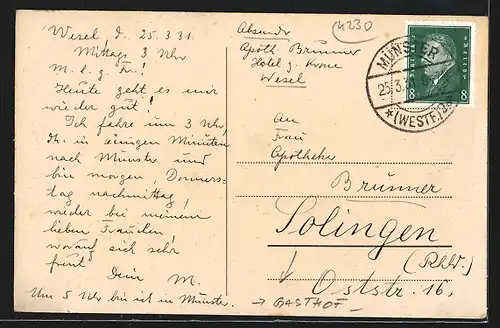 Wesel, d. 25.3.31
Mittags 3 Uhr
M. l. g. Fr.!
Heute geht es mir
wieder gut!
Ich fahre um 3 Uhr,
th. in einigen Minuten
nach Münster und
bin morgen, Donners-
tag nachmittag,
wieder bei meinem
lieben Frauchen,
worauf sich sehr
freut
Dein M.
Um 5 Uhr bin ich in Münster.
Absender
Apoth. Brünner
Hotel z. Krone
Wesel
14230
MÜNSTER
25.3.
*(WESTF)2
8 8
An
Frau
Apotheker
Brünner
Solingen
(Rhld.)
Oststr. 16.
→ GASTHOF